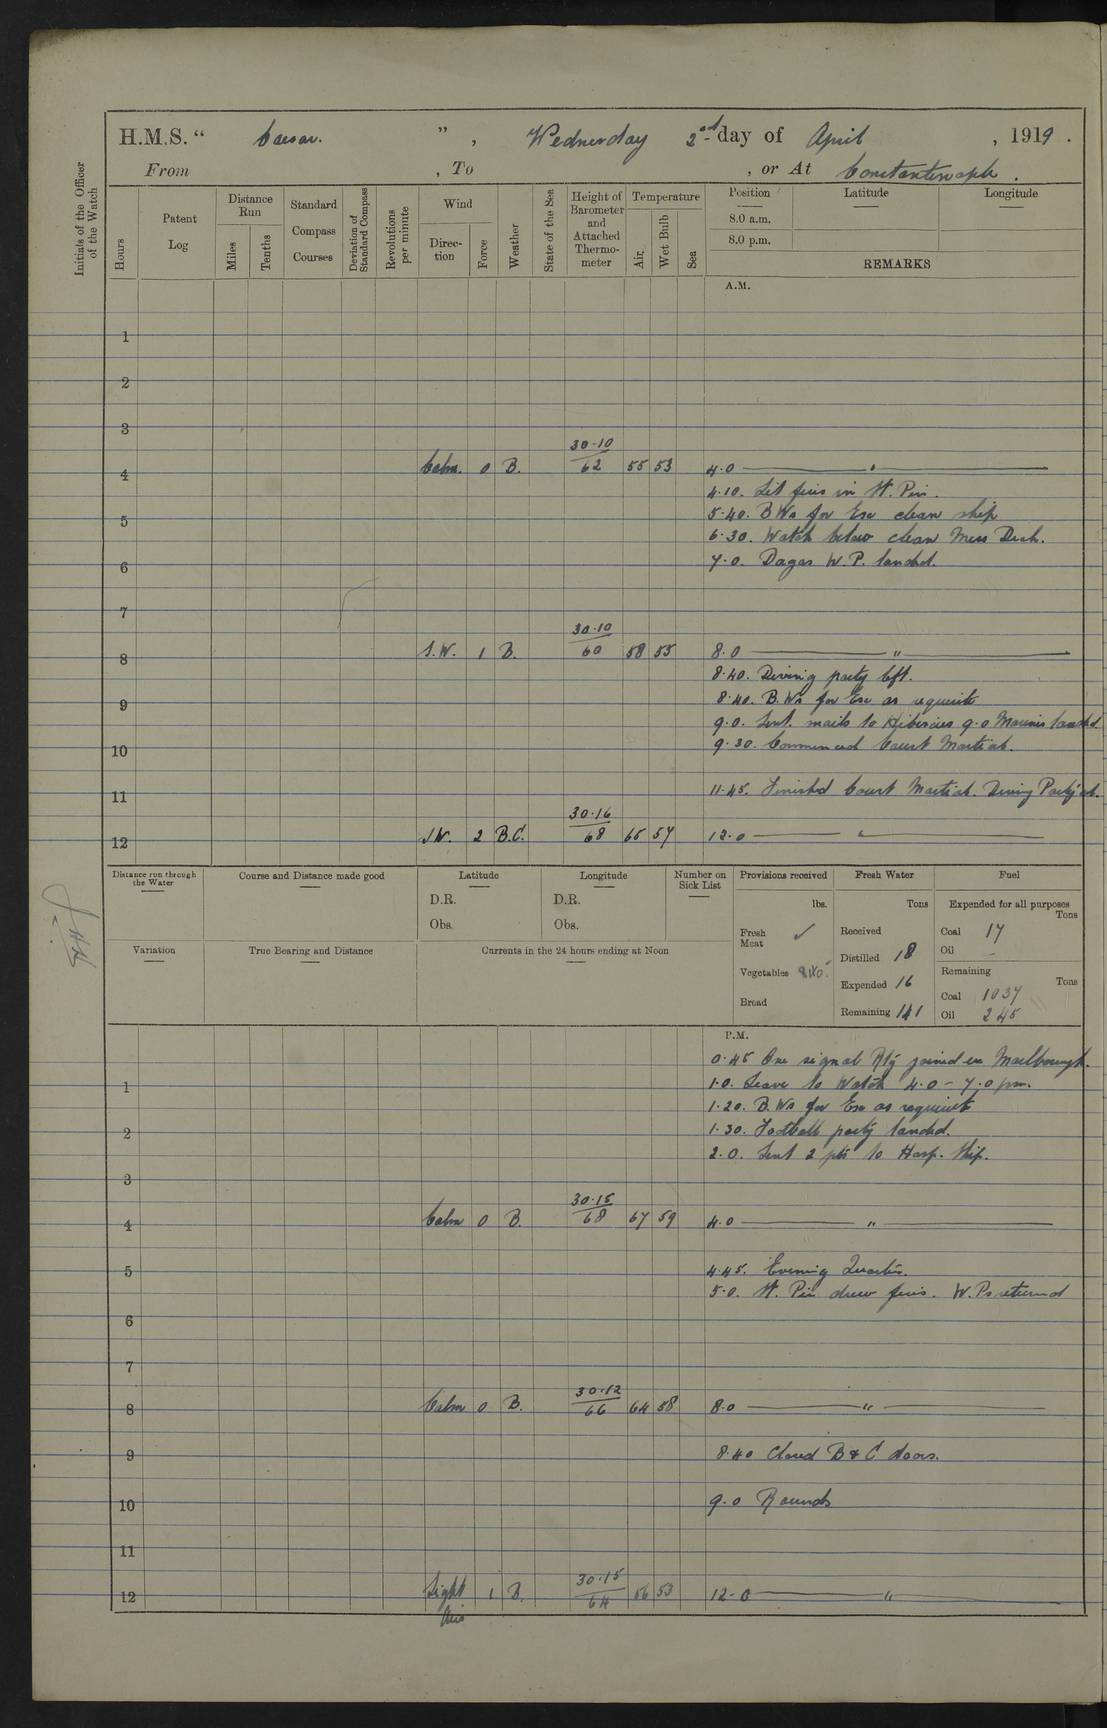 H.M.S. “ Caesar. ” , Wednesday 2nd day of April , 1919 .
From , To , or At Constantinople .
Initials of the Officer of the Watch
Hours
Patent Log
Distance Run
Miles
Tenths
Standard Compass Courses
Deviation of Standard Compass
Revolutions per minute
Wind
Direc-tion
Force
Weather
State of the Sea
Height of Barometer and Attached Thermo-meter
Temperature
Air
Wet Bulb
Sea
Position Latitude Longitude
8.0 a.m.
8.0 p.m.
REMARKS
A.M.
1
2
3
30·10
4 Calm. 0 B. 62 55 53 4·0 "
4·10. Lit fires in St. Pin.
5 5·40. B.Ws for Exe clean ship
6·30. Watch below clean Mess Deck.
6 7·0. Dagos W.P. landed.
7
30·10
8 S.W. 1 B. 60 58 55 8·0 "
8·40. Diving party left.
9 8·40. B.Ws for Exe as requisite
9·0. Sent. mails to Hibiscus 9·0 Marines landed
10 9·30. Commenced Court Martial.
11 11·45. Finished Court Martial. Diving Party ret.
30·16
12 SW. 2 B.C. 68 65 57 12·0 "
Distance run through the Water
Course and Distance made good
Latitude
D.R.
Obs.
Longitude
D.R.
Obs.
Number on Sick List
Provisions received
lbs.
Fresh Meat ✓
Vegetables
Bread
Fresh Water
Tons
Received
Distilled 18
Expended 16
Remaining 141
Fuel
Expended for all purposes
Tons
Coal 17
Oil -
Remaining
Tons
Coal 1037
Oil 245
Variation
True Bearing and Distance
Currents in the 24 hours ending at Noon
P.M.
0·45 One signal Rtg joined ex Marlborough.
1 1·0. Leave to Watch 4·0 - 7·0 pm.
1·20. B.Ws for Exe as requisite
2 1·30. Football party landed.
2·0. Sent 2 pts to Hosp. Ship.
3
30·15
4 Calm 0 B. 68 67 59 4·0 "
5 4·45. Evening Quarters.
5·0. St. Pin drew fires. W.Ps returned
6
7
30·12
8 Calm 0 B. 66 64 58 8·0 "
9 8·40 Closed B & C doors.
10 9·0 Rounds
11
30·15
12 Light Airs 1 B. 64 56 53 12·0 "